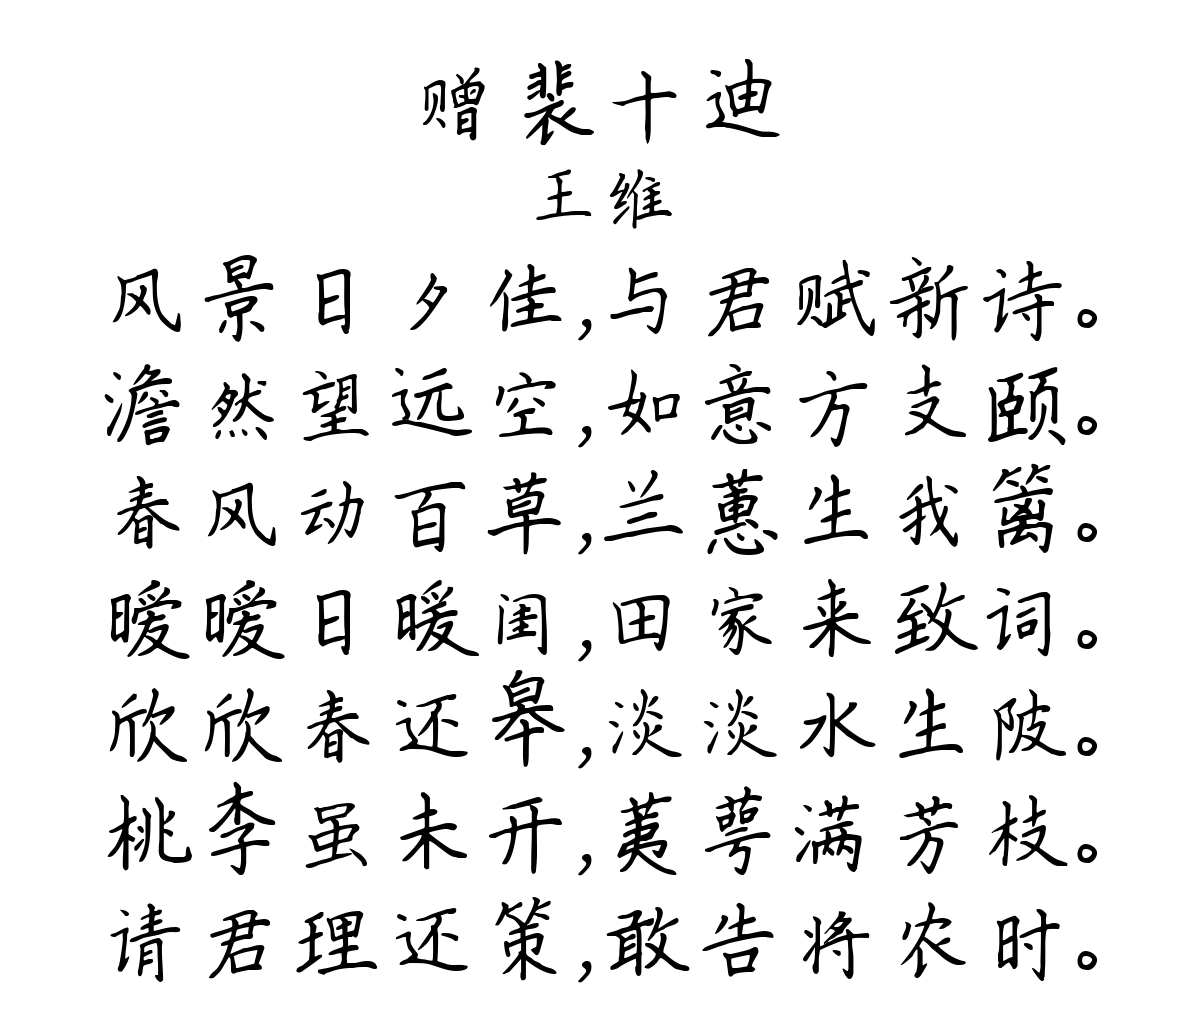 赠裴十迪
王维
风景日夕佳,与君赋新诗。
澹然望远空,如意方支颐。
春风动百草,兰蕙生我篱。
暧暧日暖闺,田家来致词。
欣欣春还皋,淡淡水生陂。
桃李虽未开,荑萼满芳枝。
请君理还策,敢告将农时。